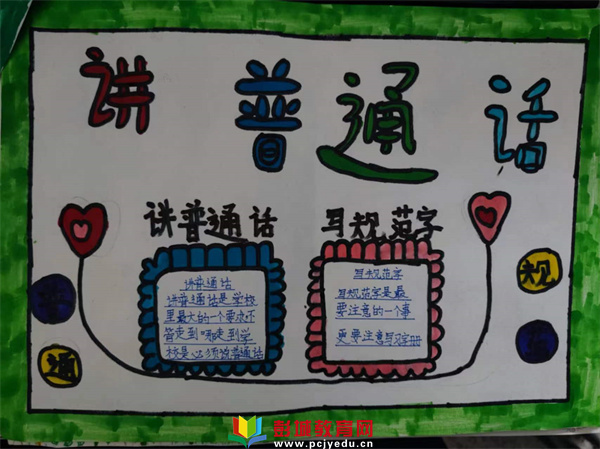 讲普通话
讲普通话 写规范字
讲普通话
讲普通话是学校
里最大的一个要求不
管走到
校是必须说普通话
写规范字
写规范字是最
要注意的一个事
更要注意写字册
普
通
规
彭城教育网
www.pcjyedu.cn